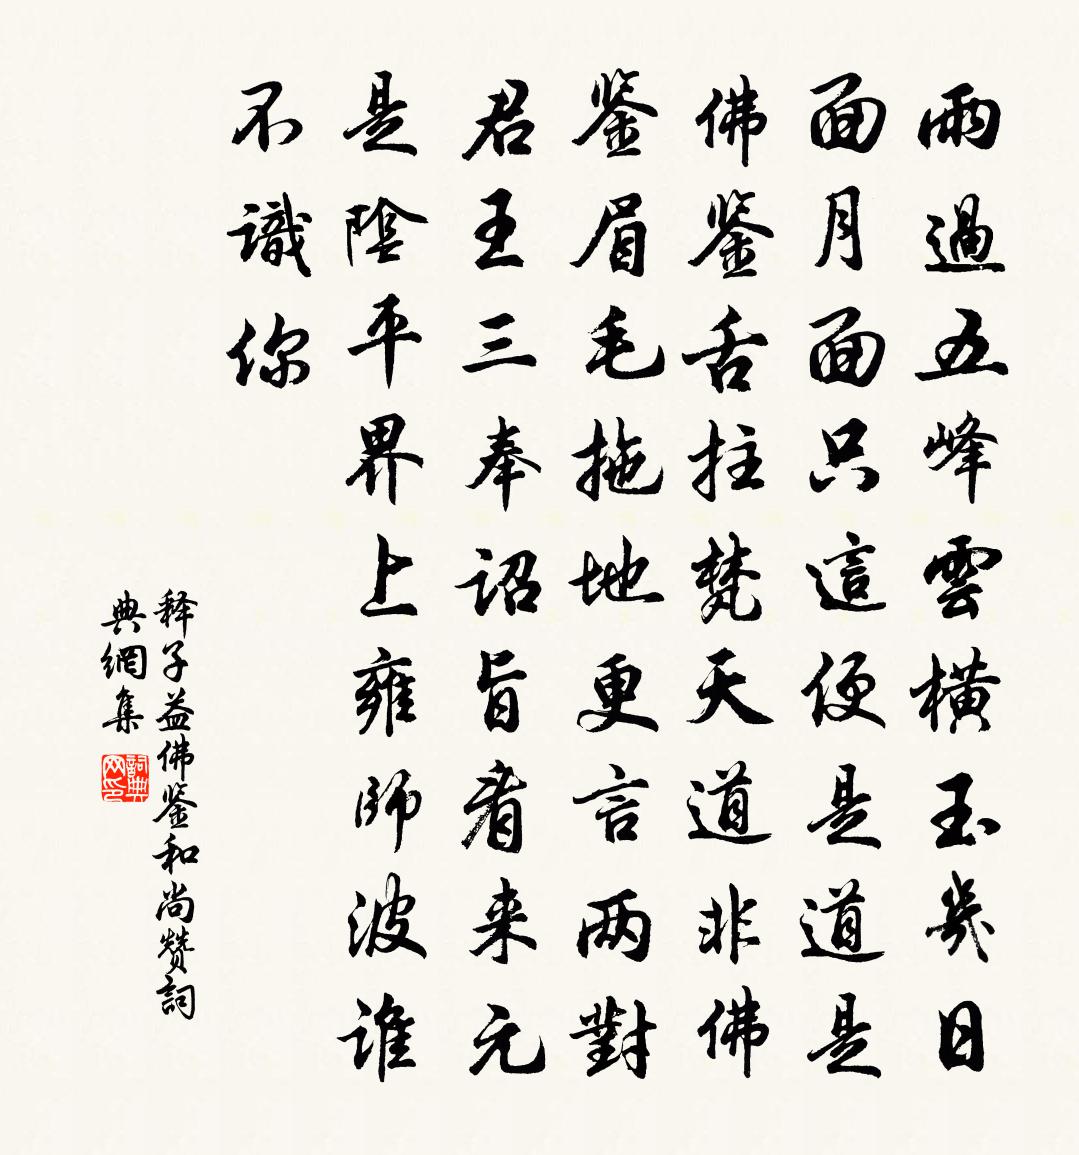 雨過五峰雲橫玉幾日
面月面只這便是道是
佛鉴舌拄梵天道非佛
鉴眉毛拖地更言两對
君王三奉詔旨看来元
是陰平界上雍師波谁
不識你
释子益佛鉴和尚赞詞
典網集
詞典网印